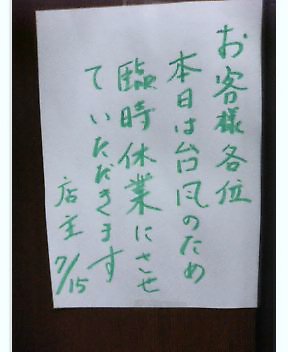 お客様各位
本日は台風のため
臨時休業にさせ
ていただきます
店主
7/15